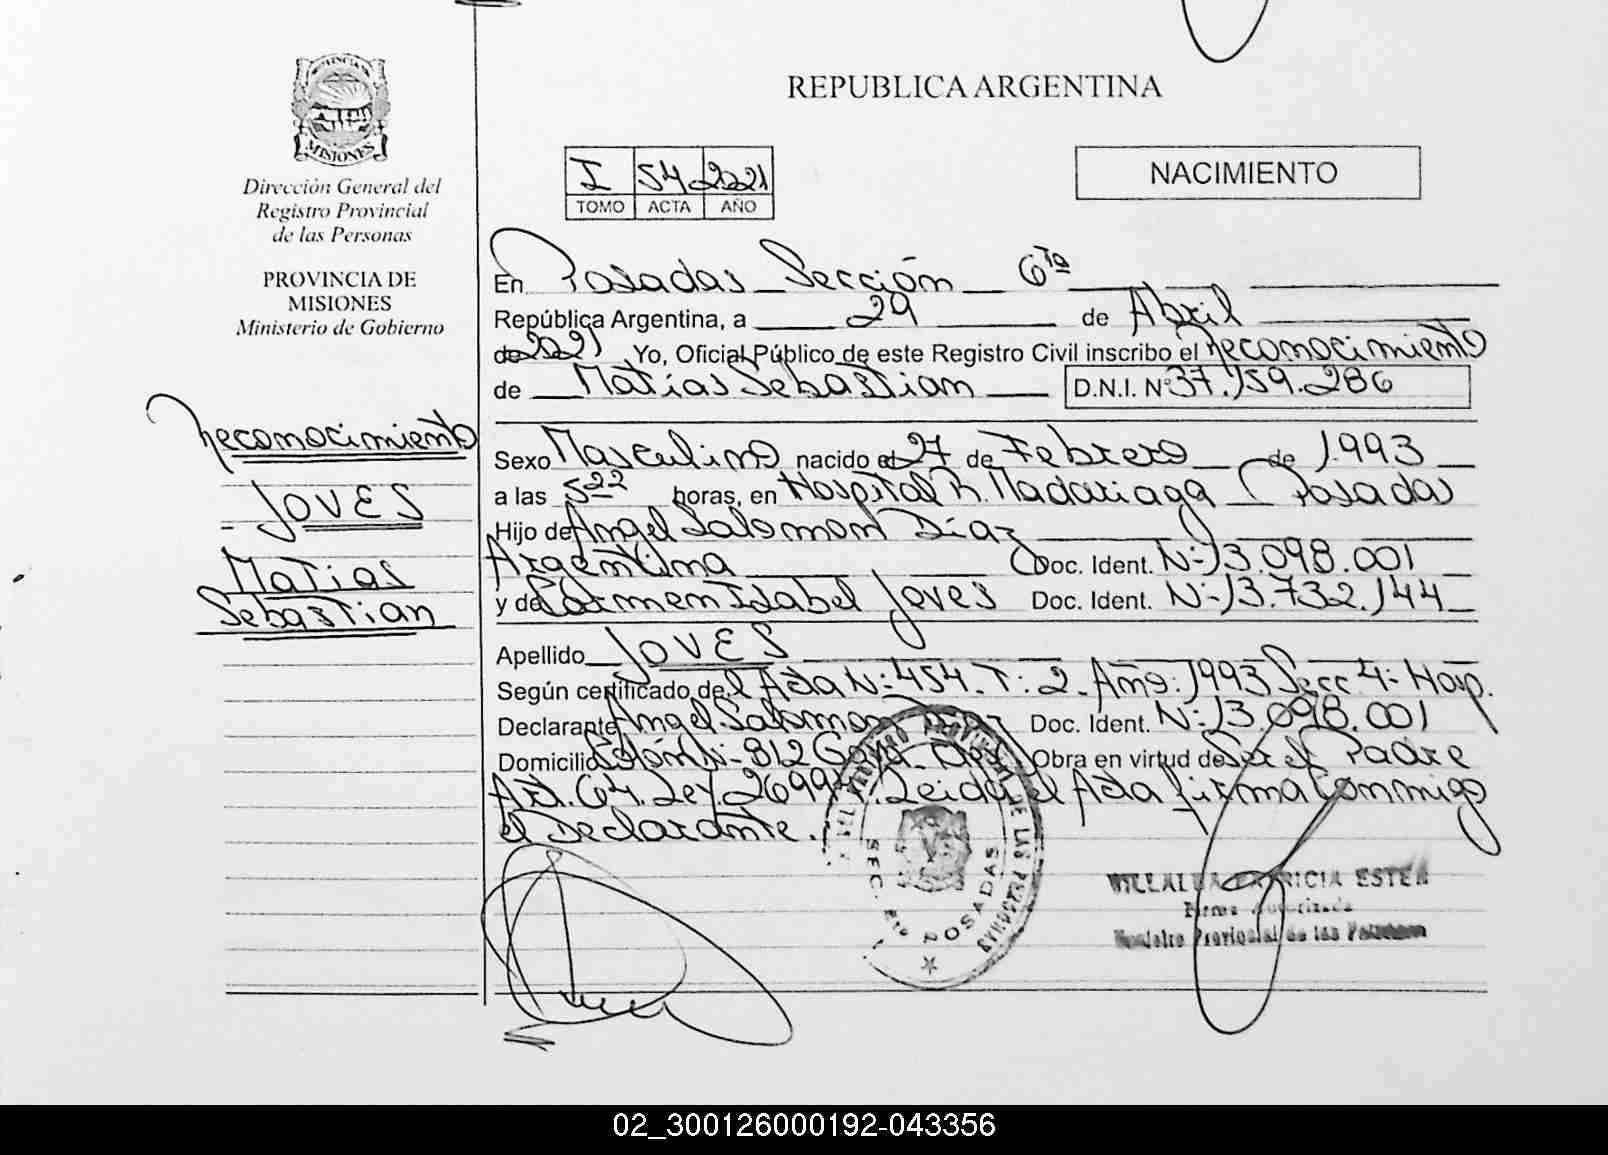 PROVINCIA DE
MISIONES
Dirección General del
Registro Provincial
de las Personas
PROVINCIA DE
MISIONES
Ministerio de Gobierno
Reconocimiento
JOVES
Matias
Sebastian
REPUBLICA ARGENTINA
I 54 2021
TOMO ACTA AÑO
NACIMIENTO
En Posadas Sección 6ta
República Argentina, a 29 de Abril
de 2021 Yo, Oficial Público de este Registro Civil inscribo el Reconocimiento
de Matias Sebastian D.N.I. Nº 37.159.286
Sexo Masculino nacido el 27 de Febrero de 1993
a las 5 22 horas, en Hospital R. Madariaga Posadas
Hijo de Angel Salomon Diaz
Argentina Doc. Ident. Nº 13.098.001
y de Carmen Isabel Joves Doc. Ident. Nº 13.732.144
Apellido JOVES
Según certificado del Acta Nº 454 T: 2 Año: 1993 Secc 4: Hosp.
Declarante Angel Salomon Diaz Doc. Ident. Nº 13.098.001
Domicilio Nº 812 Obra en virtud de Ser el Padre
Art. 64. Ley. 26994. Leida el Acta firma Conmigo
el Declarante.
POSADAS
VILLALVA PATRICIA ESTER
Firma Autorizada
Registro Provincial de las Personas
02_300126000192-043356